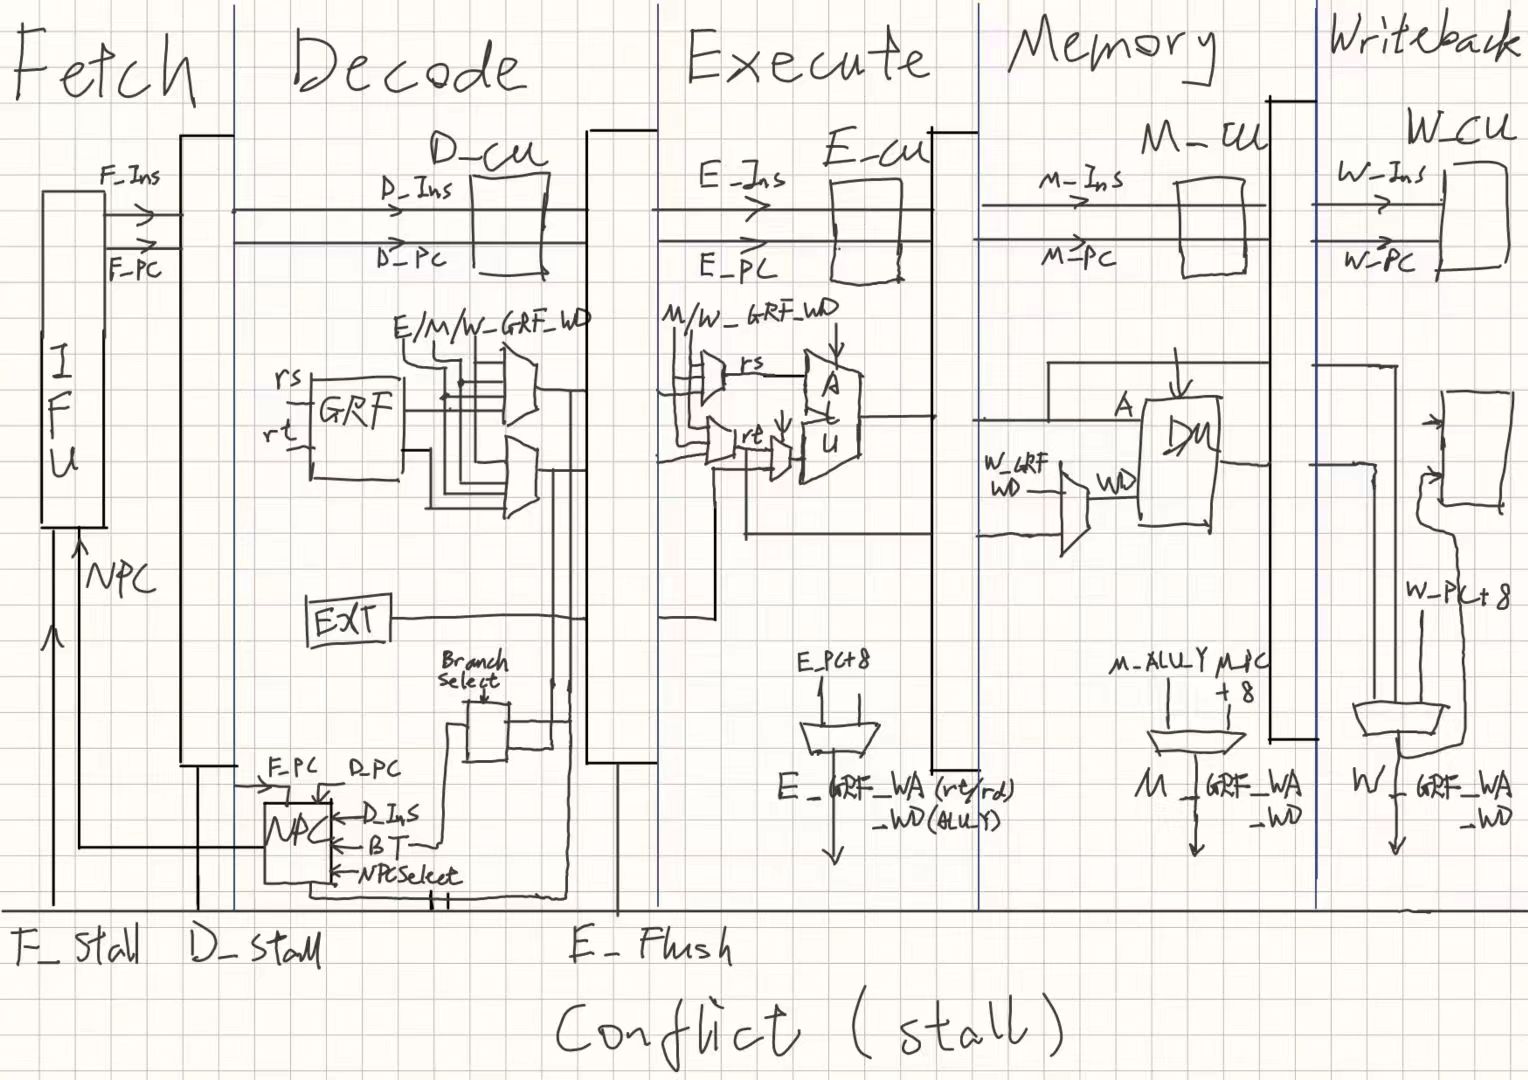 Fetch
Decode
Execute
Memory
Writeback
F_Ins
F_PC
IFU
NPC
D_CU
D_Ins
D_PC
E/M/W_GRF_WD
rs
rt
GRF
EXT
Branch
Select
F_PC
D_PC
NPC
D_Ins
BT
NPCSelect
E_CU
E_Ins
E_PC
M/W_GRF_WD
rs
rt
ALU
E_PC+8
E_GRF_WA (rt/rd)
_WD (ALU_Y)
M_CU
M_Ins
M_PC
A
DM
W_GRF
WD
WD
M_ALU_Y M_PC
+8
M_GRF_WA
_WD
W_CU
W_Ins
W_PC
W_PC+8
W_GRF_WA
_WD
F_Stall
D_Stall
E_Flush
Conflict (stall)